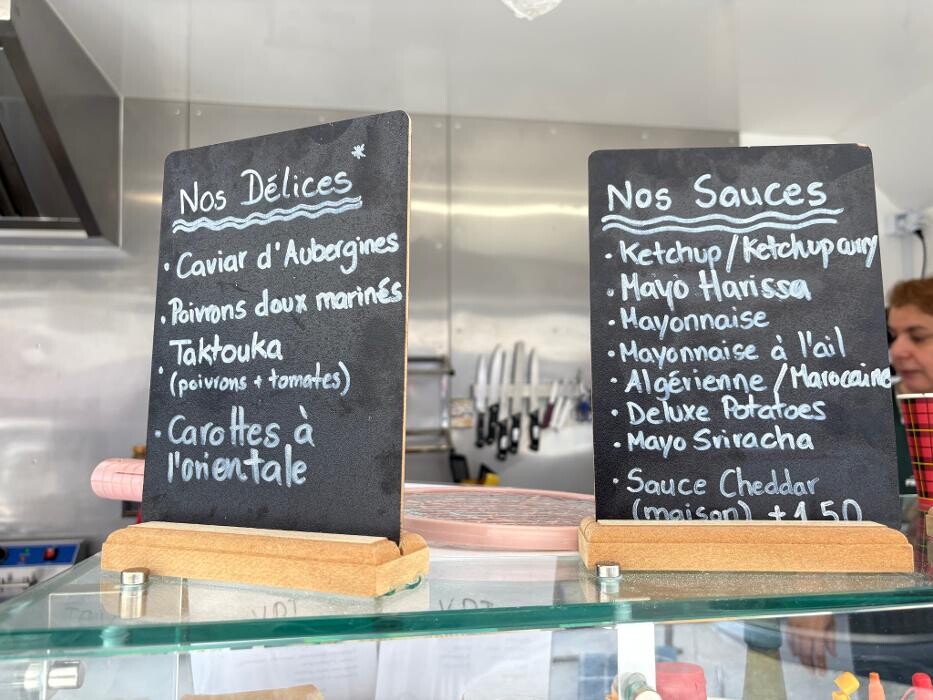 Nos Délices*
· Caviar d'Aubergines
· Poivrons doux marinés
· Taktouka
(poivrons + tomates)
· Carottes à
l'orientale
Nos Sauces
· Ketchup/Ketchup curry
· Mayo Harissa
· Mayonnaise
· Mayonnaise à l'ail
· Algérienne/Marocaine
· Deluxe Potatoes
· Mayo Sriracha
· Sauce Cheddar
(maison) +1,50